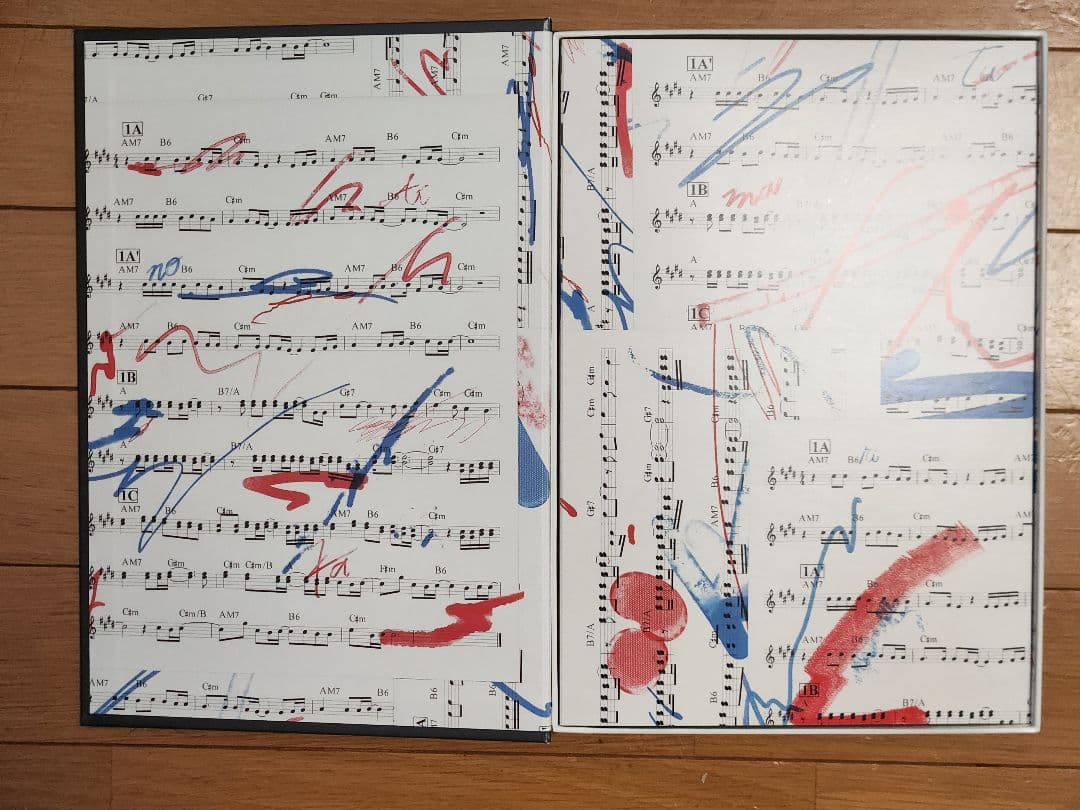 AM7
AM7
AM7
G♯7
C♯m G♯m
1A
AM7 B6 C♯m AM7 B6 C♯m
AM7 B6 C♯m AM7 B6 ti C♯m
1A'
AM7 no B6 C♯m AM7 B6 C♯m
AM7 B6 C♯m AM7 B6 C♯m
1B
A B7/A G♯7 C♯m G♯m
A B7/A G♯7
1C
AM7 B6 C♯m AM7 B6 C♯m
ta
AM7 G♯m C♯m C♯m/B F♯m B6
C♯m C♯m/B AM7 B6 C♯m
AM7 B6 C♯m AM7 B6
B6
A
1A'
AM7 B6 C♯m AM7 ta
AM7 B6 C♯m AM7 B6
1B
A mou
B7/A
A
1C
AM7 B6
A
C♯m C♯m
G♯7
G♯m
G♯7
B7/A
B7/A
C♯m
B6
AM7
C♯m
B6
1A
AM7 B6 ti C♯m AM7
AM7 B6 C♯m AM7
1A'
AM7 B6 C♯m
AM7 B6 C♯m
1B
A B7/A